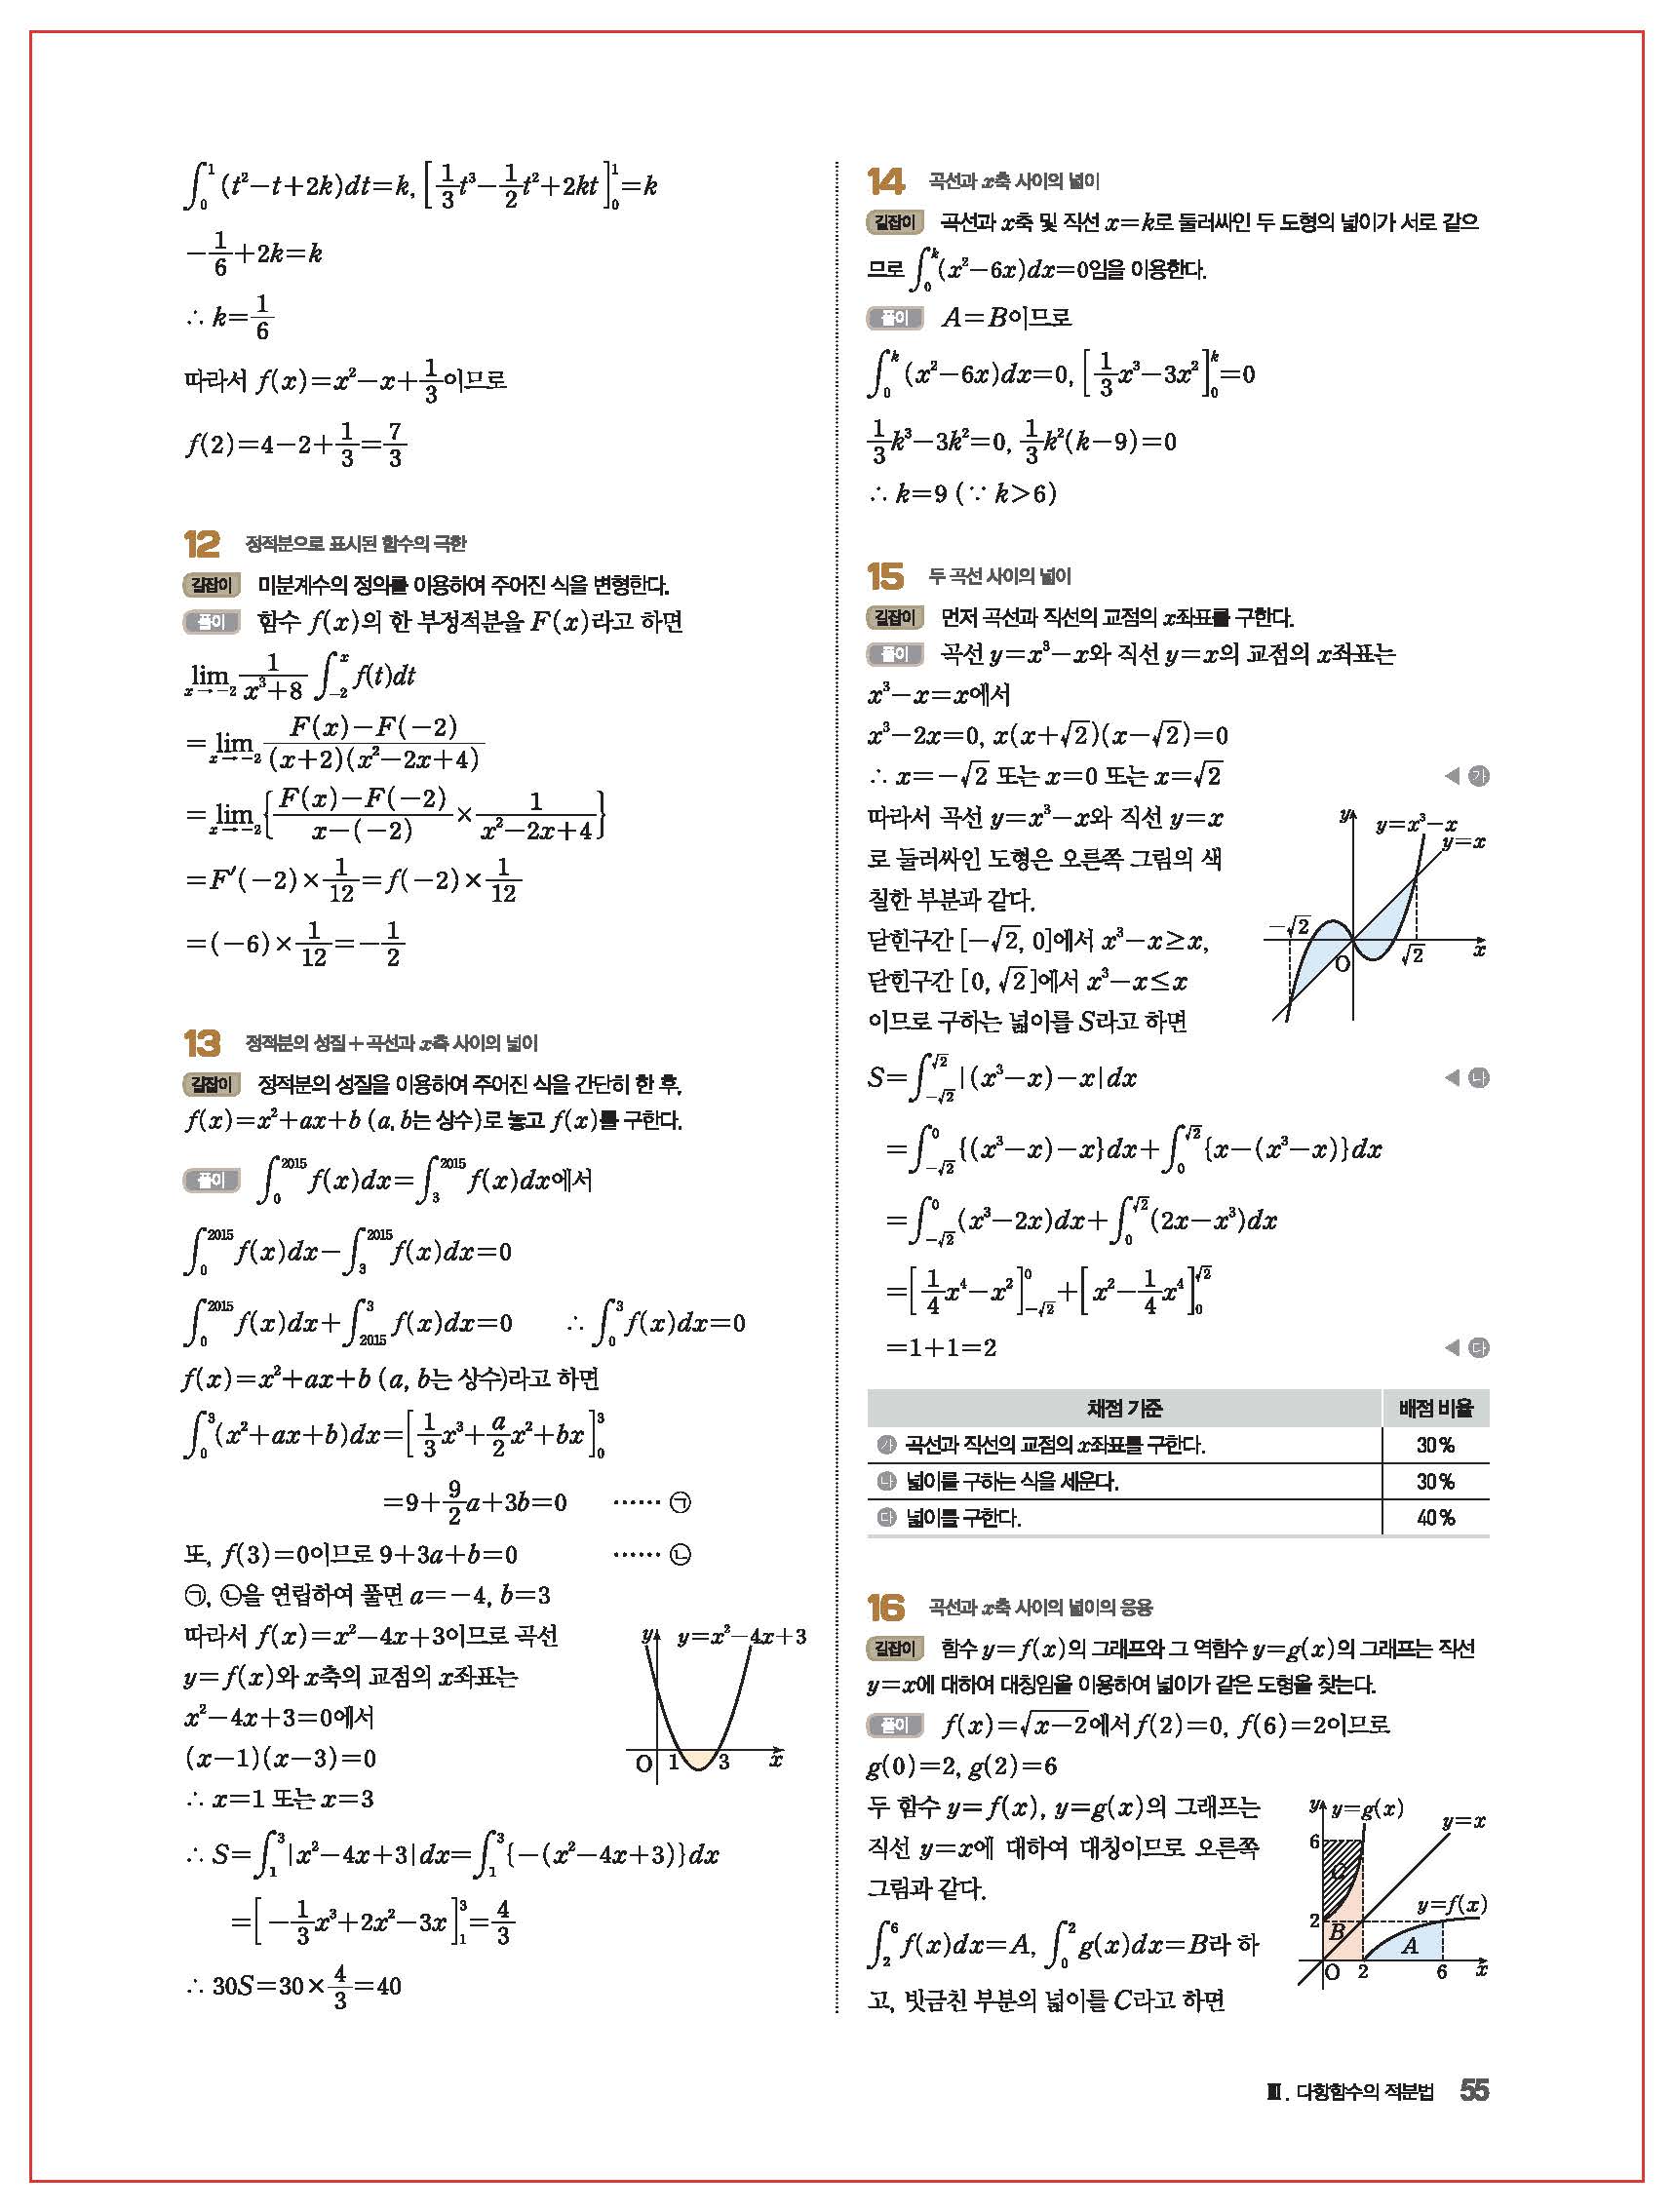 ∫₀¹(t²−t+2k)dt=k, [1/3 t³−1/2 t²+2kt]₀¹=k
−1/6+2k=k
∴ k=1/6
따라서 f(x)=x²−x+1/3이므로
f(2)=4−2+1/3=7/3
12 정적분으로 표시된 함수의 극한
길잡이 미분계수의 정의를 이용하여 주어진 식을 변형한다.
풀이 함수 f(x)의 한 부정적분을 F(x)라고 하면
lim_{x→−2} 1/(x³+8) ∫₋₂ˣ f(t)dt
=lim_{x→−2} (F(x)−F(−2))/((x+2)(x²−2x+4))
=lim_{x→−2} {(F(x)−F(−2))/(x−(−2)) × 1/(x²−2x+4)}
=F′(−2)×1/12=f(−2)×1/12
=(−6)×1/12=−1/2
13 정적분의 성질+곡선과 x축 사이의 넓이
길잡이 정적분의 성질을 이용하여 주어진 식을 간단히 한 후,
f(x)=x²+ax+b (a, b는 상수)로 놓고 f(x)를 구한다.
풀이 ∫₀²⁰¹⁵ f(x)dx=∫₃²⁰¹⁵ f(x)dx에서
∫₀²⁰¹⁵ f(x)dx−∫₃²⁰¹⁵ f(x)dx=0
∫₀²⁰¹⁵ f(x)dx+∫₂₀₁₅³ f(x)dx=0 ∴ ∫₀³ f(x)dx=0
f(x)=x²+ax+b (a, b는 상수)라고 하면
∫₀³(x²+ax+b)dx=[1/3 x³+a/2 x²+bx]₀³
=9+9/2 a+3b=0 …… ㉠
또, f(3)=0이므로 9+3a+b=0 …… ㉡
㉠, ㉡을 연립하여 풀면 a=−4, b=3
따라서 f(x)=x²−4x+3이므로 곡선
y=f(x)와 x축의 교점의 x좌표는
x²−4x+3=0에서
(x−1)(x−3)=0
∴ x=1 또는 x=3
y y=x²−4x+3
O 1 3 x
∴ S=∫₁³|x²−4x+3|dx=∫₁³{−(x²−4x+3)}dx
=[−1/3 x³+2x²−3x]₁³=4/3
∴ 30S=30×4/3=40
14 곡선과 x축 사이의 넓이
길잡이 곡선과 x축 및 직선 x=k로 둘러싸인 두 도형의 넓이가 서로 같으
므로 ∫₀ᵏ(x²−6x)dx=0임을 이용한다.
풀이 A=B이므로
∫₀ᵏ(x²−6x)dx=0, [1/3 x³−3x²]₀ᵏ=0
1/3 k³−3k²=0, 1/3 k²(k−9)=0
∴ k=9 (∵ k>6)
15 두 곡선 사이의 넓이
길잡이 먼저 곡선과 직선의 교점의 x좌표를 구한다.
풀이 곡선 y=x³−x와 직선 y=x의 교점의 x좌표는
x³−x=x에서
x³−2x=0, x(x+√2)(x−√2)=0
∴ x=−√2 또는 x=0 또는 x=√2 ◀ ㉮
따라서 곡선 y=x³−x와 직선 y=x
로 둘러싸인 도형은 오른쪽 그림의 색
칠한 부분과 같다.
닫힌구간 [−√2, 0]에서 x³−x≥x,
닫힌구간 [0, √2]에서 x³−x≤x
이므로 구하는 넓이를 S라고 하면
y y=x³−x
y=x
−√2
O √2 x
S=∫_{−√2}^{√2}|(x³−x)−x|dx ◀ ㉯
=∫_{−√2}^{0}{(x³−x)−x}dx+∫_{0}^{√2}{x−(x³−x)}dx
=∫_{−√2}^{0}(x³−2x)dx+∫_{0}^{√2}(2x−x³)dx
=[1/4 x⁴−x²]_{−√2}^{0}+[x²−1/4 x⁴]_{0}^{√2}
=1+1=2 ◀ ㉰
채점 기준 배점 비율
㉮ 곡선과 직선의 교점의 x좌표를 구한다. 30%
㉯ 넓이를 구하는 식을 세운다. 30%
㉰ 넓이를 구한다. 40%
16 곡선과 x축 사이의 넓이의 응용
길잡이 함수 y=f(x)의 그래프와 그 역함수 y=g(x)의 그래프는 직선
y=x에 대하여 대칭임을 이용하여 넓이가 같은 도형을 찾는다.
풀이 f(x)=√(x−2)에서 f(2)=0, f(6)=2이므로
g(0)=2, g(2)=6
두 함수 y=f(x), y=g(x)의 그래프는
직선 y=x에 대하여 대칭이므로 오른쪽
그림과 같다.
∫₂⁶ f(x)dx=A, ∫₀² g(x)dx=B라 하
고, 빗금친 부분의 넓이를 C라고 하면
y y=g(x)
y=x
6
C
y=f(x)
2
B A
O 2 6 x
Ⅲ. 다항함수의 적분법 55